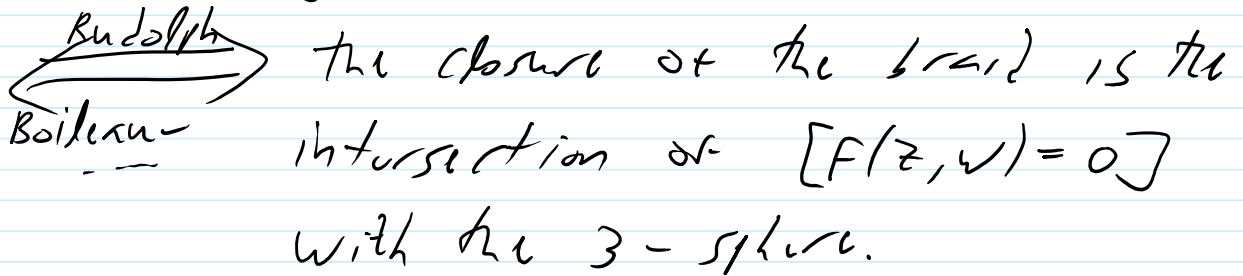 Rudolph
the closure of the braid is the
Boileau-
intersection of [F(z,w)=0]
with the 3-sphere.